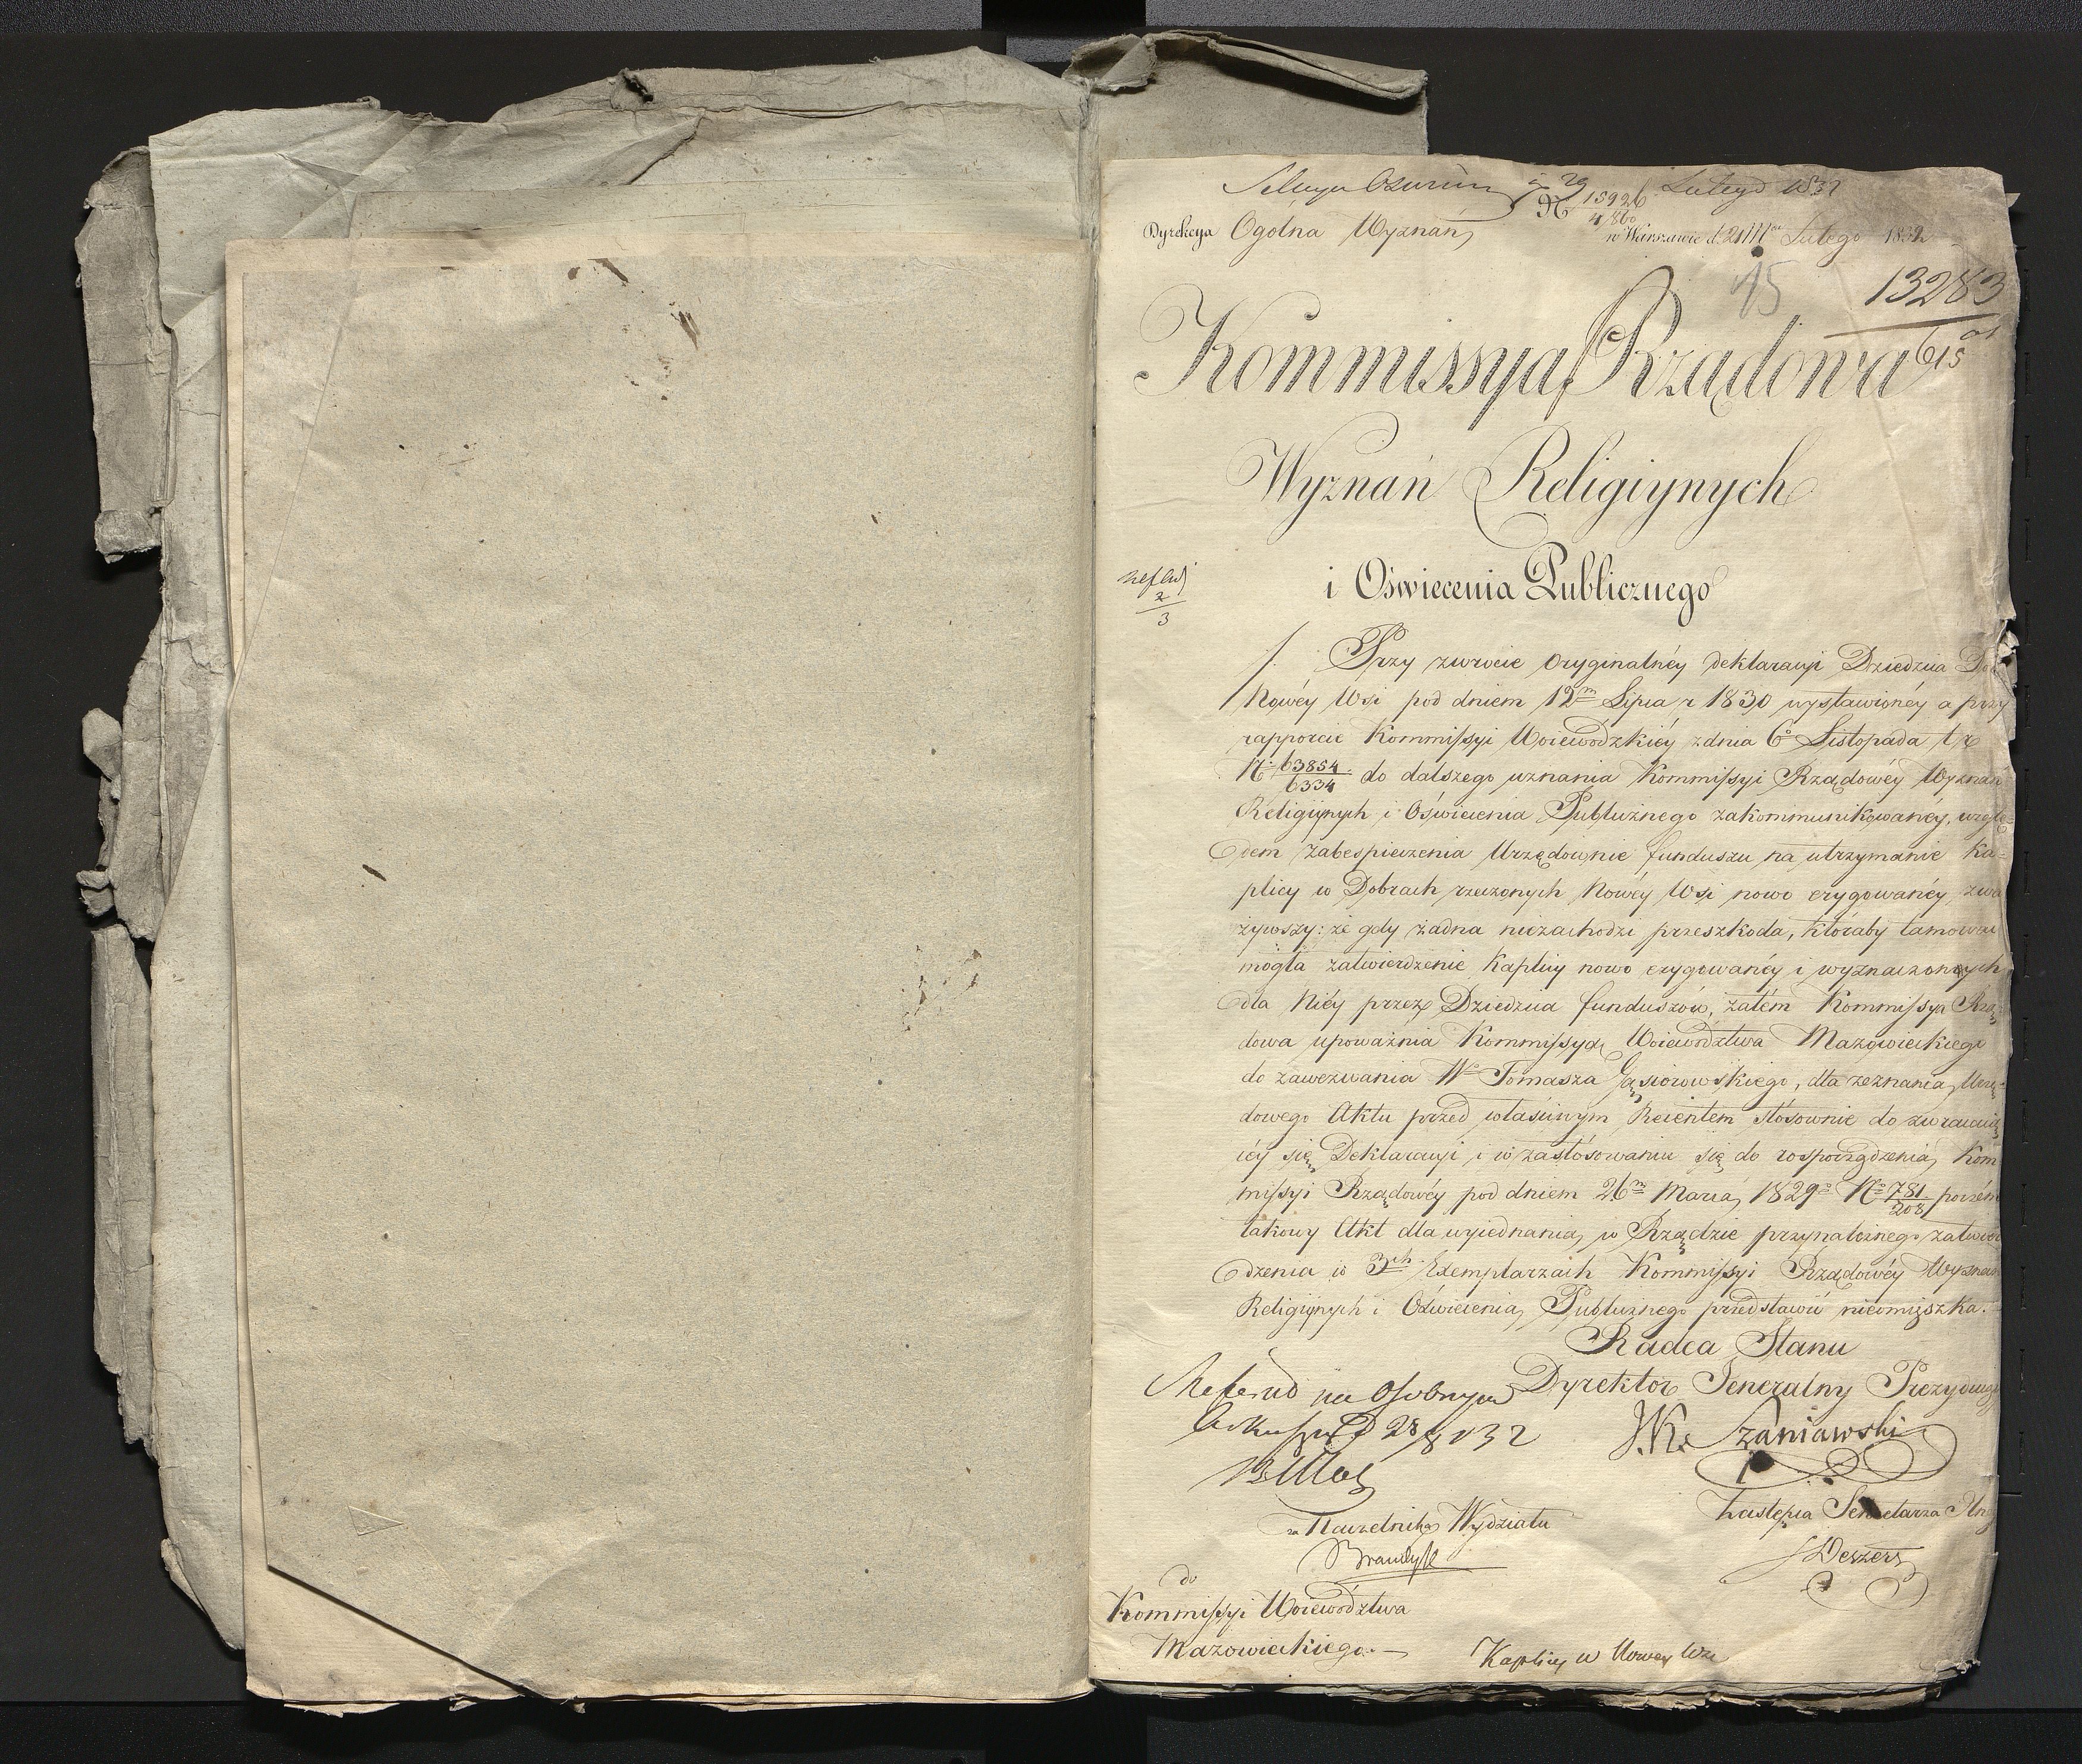 29 Lutego 1832
Dyrekcya Ogólna Wyznań
№ 15926
4860
w Warszawie d. Lutego 1832
15
13283
615
Kommissya Rządowa
Wyznań Religiynych
i Oświecenia Publicznego
2
3
Przy zwrocie oryginalnéy deklaracyi Dziedzica Dóbr
Nowéy Wsi pod dniem 12m Lipca r 1830 wystawionéy a przy
rapporcie Kommissyi Woiewódzkiéy z dnia 6o Listopada t. r.
№ 63854/6334 do dalszego uznania Kommissyi Rządowéy Wyznań
Religiynych i Oświecenia Publicznego zakommunikowanéy, wzglę-
dem zabespieczenia Urzędownie funduszu na utrzymanie Ka-
plicy w Dobrach rzeczonych Nowéy Wsi nowo erygowanéy, zwa
żywszy: że gdy żadna niezachodzi przeszkoda, któraby tamować
mogła zatwierdzenie Kaplicy nowo erygowanéy i wyznaczonych
dla Niéy przez Dziedzica funduszów, zatém Kommissya Rzą-
dowa upoważnia Kommissyą Woiewództwa Mazowieckiego
do zawezwania Wo Tomasza Gąsiorowskiego, dla zeznania Urzę-
dowego Aktu przed właściwym Reientem stósownie do zwracaią
céy się Deklaracyi i w zastósowaniu się do rosporządzenia Kom
missyi Rządowéy pod dniem 26m Marca 1829o No 781/208 poczém
takowy Akt dla wyiednania w Rządzie przynależnego zatwier
dzenia w 3ch Exemplarzach Kommissyi Rządowéy Wyznań
Religiynych i Oświecenia Publicznego przedstawić nieomiészka.
Radca Stanu
Dyrektor Jeneralny Prezyduiący
J. K. Szaniawski
Referad na Osobnym
Arkuszu D 28/ 832
za Naczelnika Wydziału
Zastępca Sekretarza
do
Kommissyi Woiewództwa
Mazowieckiego.
Kaplicy w Nowey Wsi